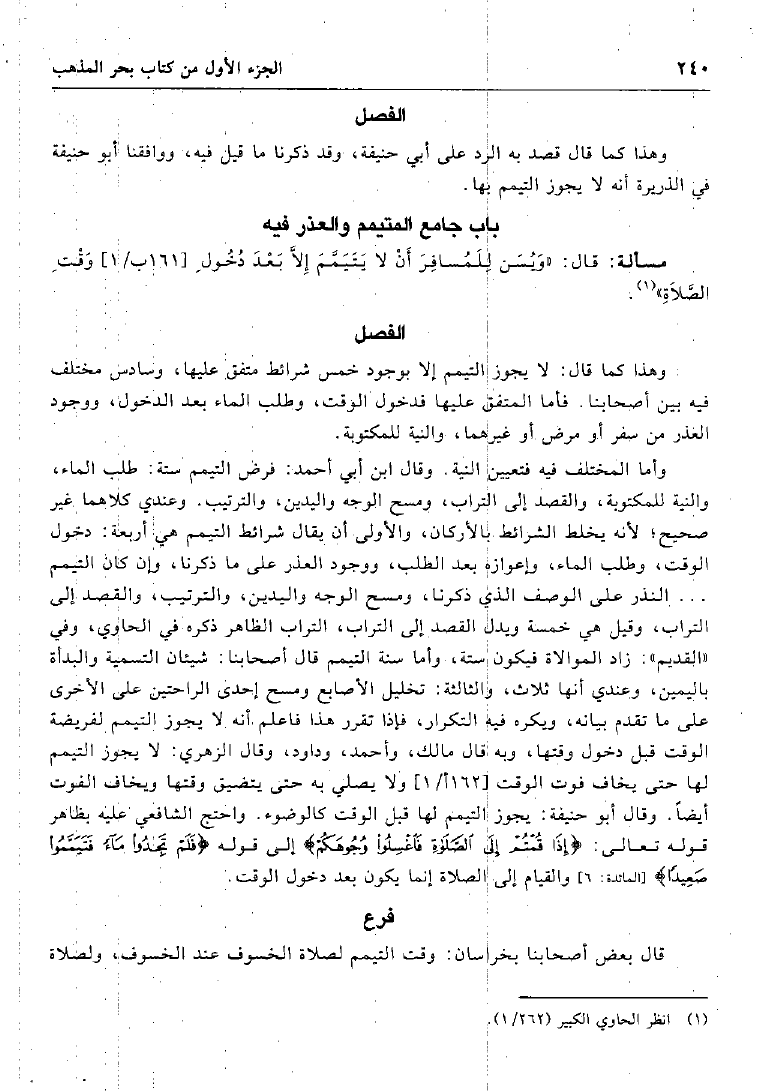 ٢٤٠ الجزء الأول من كتاب بحر المذهب
الفصل
وهذا كما قال قصد به الرد على أبي حنيفة، وقد ذكرنا ما قيل فيه، ووافقنا أبو حنيفة
في الذريرة أنه لا يجوز التيمم بها.
باب جامع المتيمم والعذر فيه
مسألة: قال: «وَيُسَن لِلْمُسافِرَ أَنْ لا يَتَيَمَّمَ إِلاَّ بَعْدَ دُخُولِ [١٦١ب/١] وَقْتِ
الصَّلاَةِ»(١).
الفصل
وهذا كما قال: لا يجوز التيمم إلا بوجود خمس شرائط متفق عليها، وسادس مختلف
فيه بين أصحابنا. فأما المتفق عليها فدخول الوقت، وطلب الماء بعد الدخول، ووجود
العذر من سفر أو مرض أو غيرهما، والنية للمكتوبة.
وأما المختلف فيه فتعيين النية. وقال ابن أبي أحمد: فرض التيمم ستة: طلب الماء،
والنية للمكتوبة، والقصد إلى التراب، ومسح الوجه واليدين، والترتيب. وعندي كلاهما غير
صحيح؛ لأنه يخلط الشرائط بالأركان، والأولى أن يقال شرائط التيمم هي أربعة: دخول
الوقت، وطلب الماء، وإعوازه بعد الطلب، ووجود العذر على ما ذكرنا، وإن كان التيمم
... النذر على الوصف الذي ذكرنا، ومسح الوجه واليدين، والترتيب، والقصد إلى
التراب، وقيل هي خمسة ويدل القصد إلى التراب، التراب الظاهر ذكره في الحاوي، وفي
«القديم»: زاد الموالاة فيكون ستة، وأما سنة التيمم قال أصحابنا: شيئان التسمية والبدأة
باليمين، وعندي أنها ثلاث، والثالثة: تخليل الأصابع ومسح إحدى الراحتين على الأخرى
على ما تقدم بيانه، ويكره فيه التكرار، فإذا تقرر هذا فاعلم أنه لا يجوز التيمم لفريضة
الوقت قبل دخول وقتها، وبه قال مالك، وأحمد، وداود، وقال الزهري: لا يجوز التيمم
لها حتى يخاف فوت الوقت [١٦٢أ/١] ولا يصلي به حتى يتضيق وقتها ويخاف الفوت
أيضاً. وقال أبو حنيفة: يجوز التيمم لها قبل الوقت كالوضوء. واحتج الشافعي عليه بظاهر
قوله تعالى: ﴿إِذَا قُمْتُمْ إِلَى ٱلصَّلَوٰةِ فَٱغْسِلُوا۟ وُجُوهَكُمْ﴾ إلى قوله ﴿فَلَمْ تَجِدُوا۟ مَآءً فَتَيَمَّمُوا۟
صَعِيدًا﴾ [المائدة: ٦] والقيام إلى الصلاة إنما يكون بعد دخول الوقت.
فرع
قال بعض أصحابنا بخراسان: وقت التيمم لصلاة الخسوف عند الخسوف، ولصلاة
(١) انظر الحاوي الكبير (١/٢٦٢).